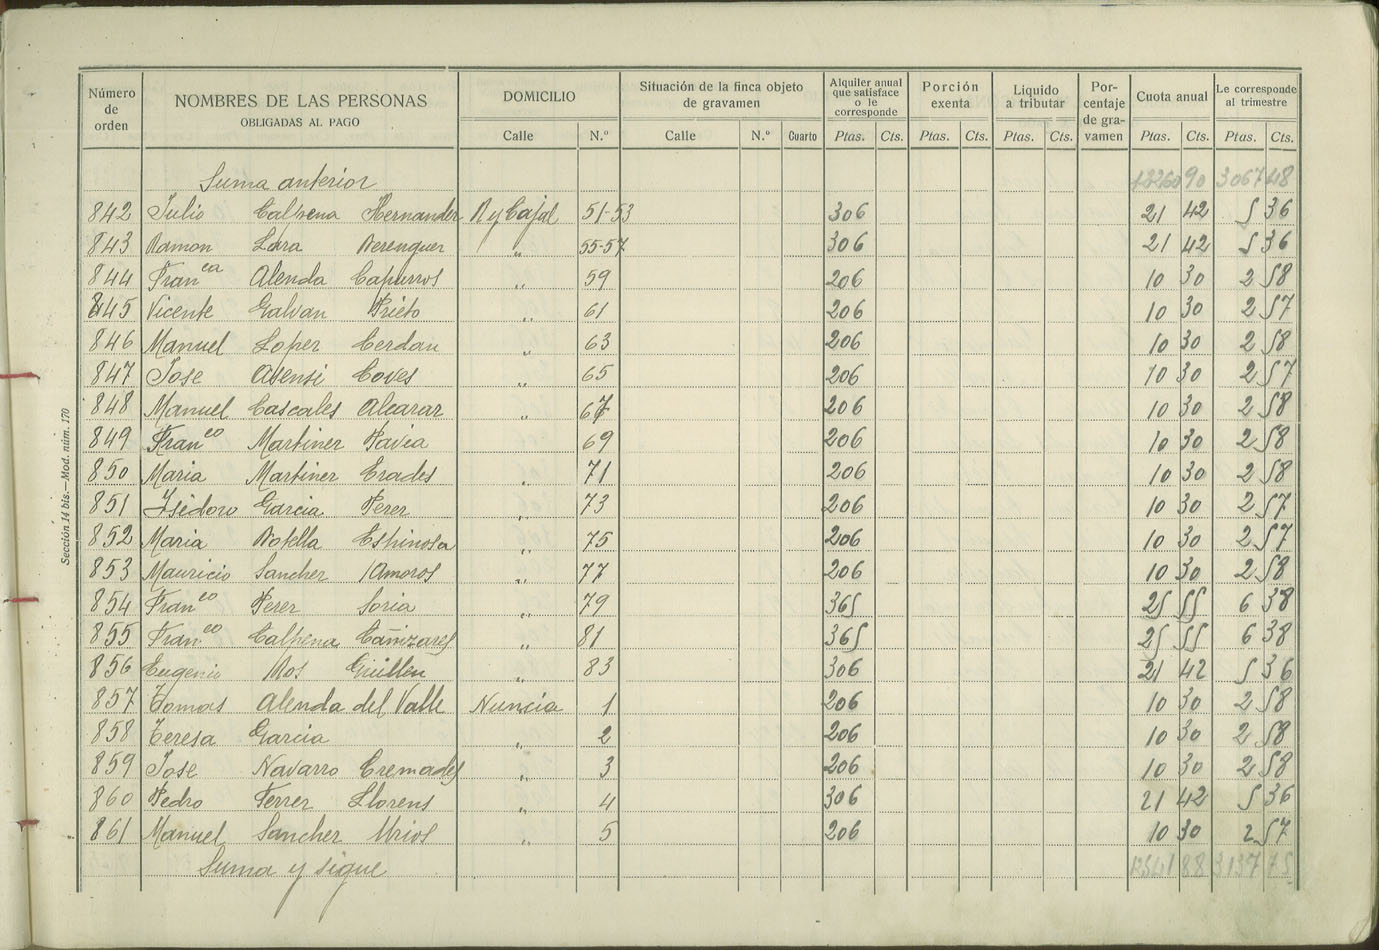 Número de orden NOMBRES DE LAS PERSONAS OBLIGADAS AL PAGO DOMICILIO Situación de la finca objeto de gravamen Alquiler anual que satisface o le corresponde Porción exenta Líquido a tributar Por-centaje de gra-vamen Cuota anual Le corresponde al trimestre
Calle N.º Calle N.º Cuarto Ptas. Cts. Ptas. Cts. Ptas. Cts. Ptas. Cts. Ptas. Cts.
Suma anterior 90 3067 48
842 Julio Calpena Hernander R y Cajal 51-53 306 21 42 5 36
843 Ramon Lara Berenguer " 55-57 306 21 42 5 36
844 Fran ca Alenda Caparros " 59 206 10 30 2 58
845 Vicente Galvan Prieto " 61 206 10 30 2 57
846 Manuel Loper Cerdan " 63 206 10 30 2 58
847 Jose Asensi Coves " 65 206 10 30 2 57
848 Manuel Cascales Alcarar " 67 206 10 30 2 58
849 Fran co Martiner Pavia " 69 206 10 30 2 58
850 Maria Martiner Crades " 71 206 10 30 2 58
851 Isidoro Garcia Perer " 73 206 10 30 2 57
852 Maria Botella Espinosa " 75 206 10 30 2 57
853 Mauricio Sancher Amoros " 77 206 10 30 2 58
854 Fran co Perer Soria " 79 365 25 55 6 38
855 Fran co Calpena Cañizares " 81 365 25 55 6 38
856 Eugenio Mos Guillen " 83 306 21 42 5 36
857 Tomas Alenda del Valle Nuncia 1 206 10 30 2 58
858 Teresa Garcia " 2 206 10 30 2 58
859 Jose Navarro Cremades " 3 206 10 30 2 58
860 Pedro Ferrer Llorens " 4 306 21 42 5 36
861 Manuel Sancher Mrios " 5 206 10 30 2 57
Suma y sigue 12541 88 3137 75
Sección 14 bis.—Mod. núm. 170